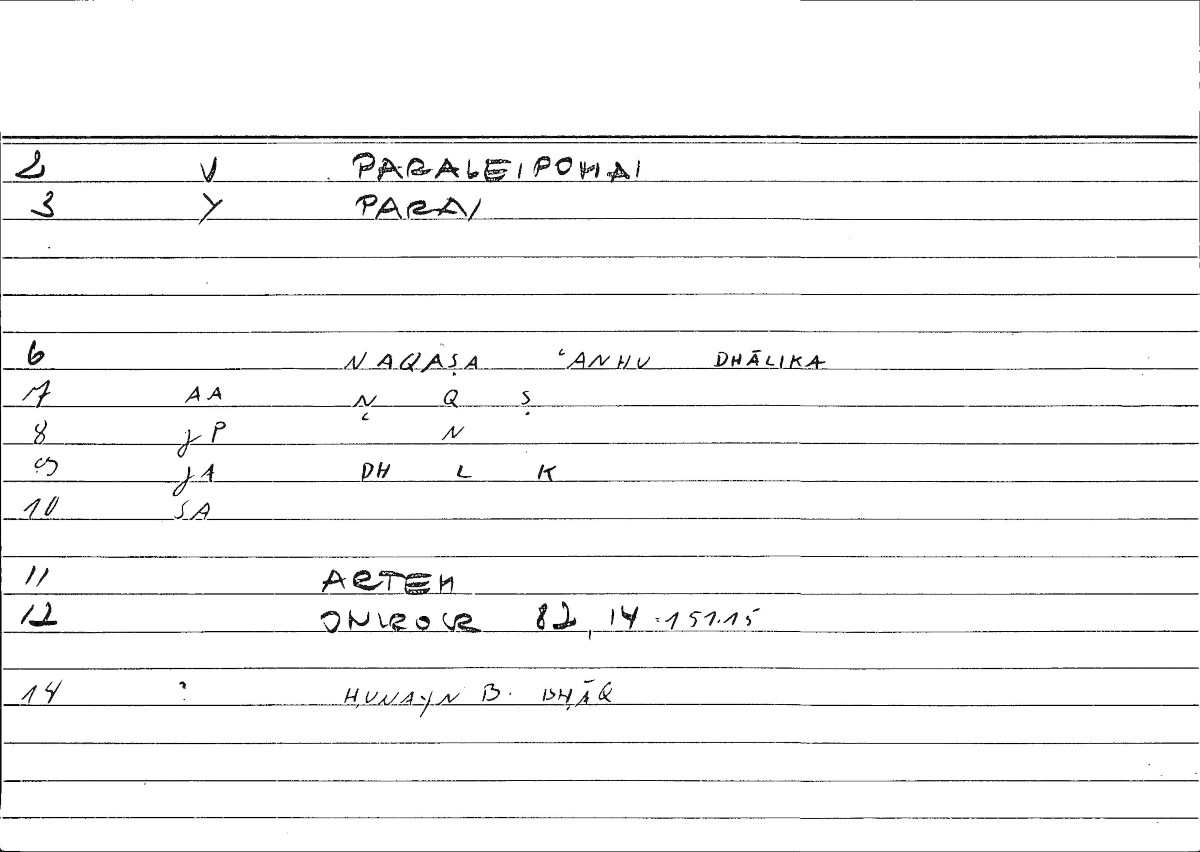 2 V PARALEIPOMAI
3 Y PARAI
6 NAQAṢA ʿANHU DHĀLIKA
7 AA N Q Ṣ
8 JP ʿ N
9 JA DH L K
10 SA
11 ARTEM
12 ONIROCR 82, 14 = 151.15
14 ? ḤUNAYN B. ISḤĀQ